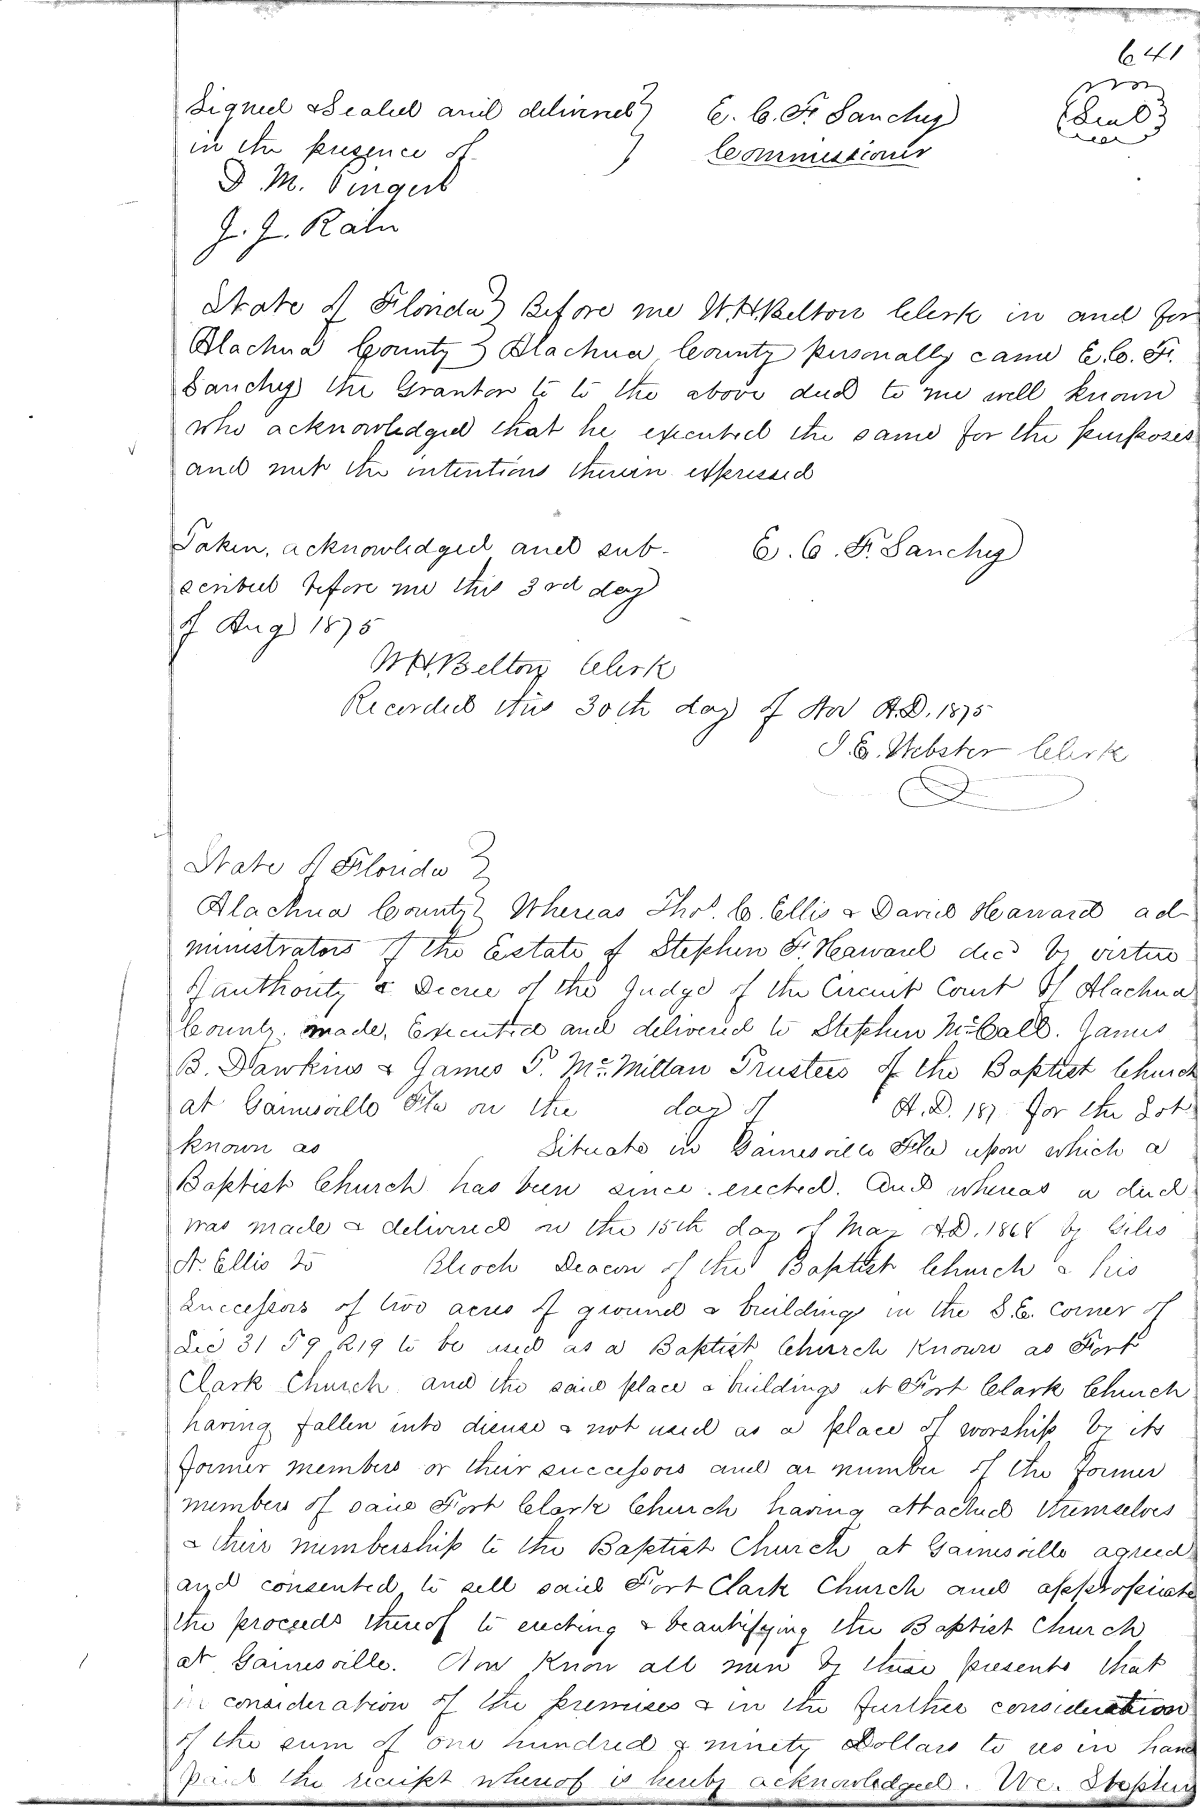 641
Signed & Sealed and delivered } E. C. F. Sanchez (Seal)
in the presence of } Commissioner
D. M.
J. J.
State of Florida } Before me W.H. Belton Clerk in and for
Alachua County } Alachua County personally came E. C. F.
Sanchez the Grantor to to the above deed to me well known
who acknowledged that he executed the same for the purposes
and the intentions therein expressed
Taken, acknowledged and sub- E. C. F. Sanchez
scribed before me this 3rd day
of Aug 1875
W.H. Belton Clerk
Recorded this 30th day of Nov A.D. 1875
J. E. Webster Clerk
State of Florida }
Alachua County } Whereas Thos. C. Ellis & David Haward ad
ministrators of the Estate of Stephen F. Haward decd by virtue
of authority & Decree of the Judge of the Circuit Court of Alachua
County, made, Executed and delivered to Stephen McCall. James
B. Dawkins & James P. McMillan Trustees of the Baptist Church
at Gainesville Fla on the day of A.D. 187 for the Lot
known as Situate in Gainesville Fla upon which a
Baptist Church has been since erected. And whereas a deed
was made & delivered on the 15th day of May A.D. 1868 by Giles
N. Ellis to Blioch Deacon of the Baptist Church & his
successors of two acres of ground & buildings in the S.E. corner of
Sec 31 T9 R19 to be used as a Baptist Church Known as Fort
Clark Church and the said place & buildings at Fort Clark Church
having fallen into disuse & not used as a place of worship by its
former members or their successors and a number of the former
members of said Fort Clark Church having attached themselves
& their membership to the Baptist Church at Gainesville agreed
and consented to sell said Fort Clark Church and appropriate
the proceeds thereof to erecting & beautifying the Baptist Church
at Gainesville. Now Know all men by these presents that
in consideration of the premises & in the further consideration
of the sum of one hundred & ninety Dollars to us in hand
paid the receipt whereof is hereby acknowledged. We. Stephen